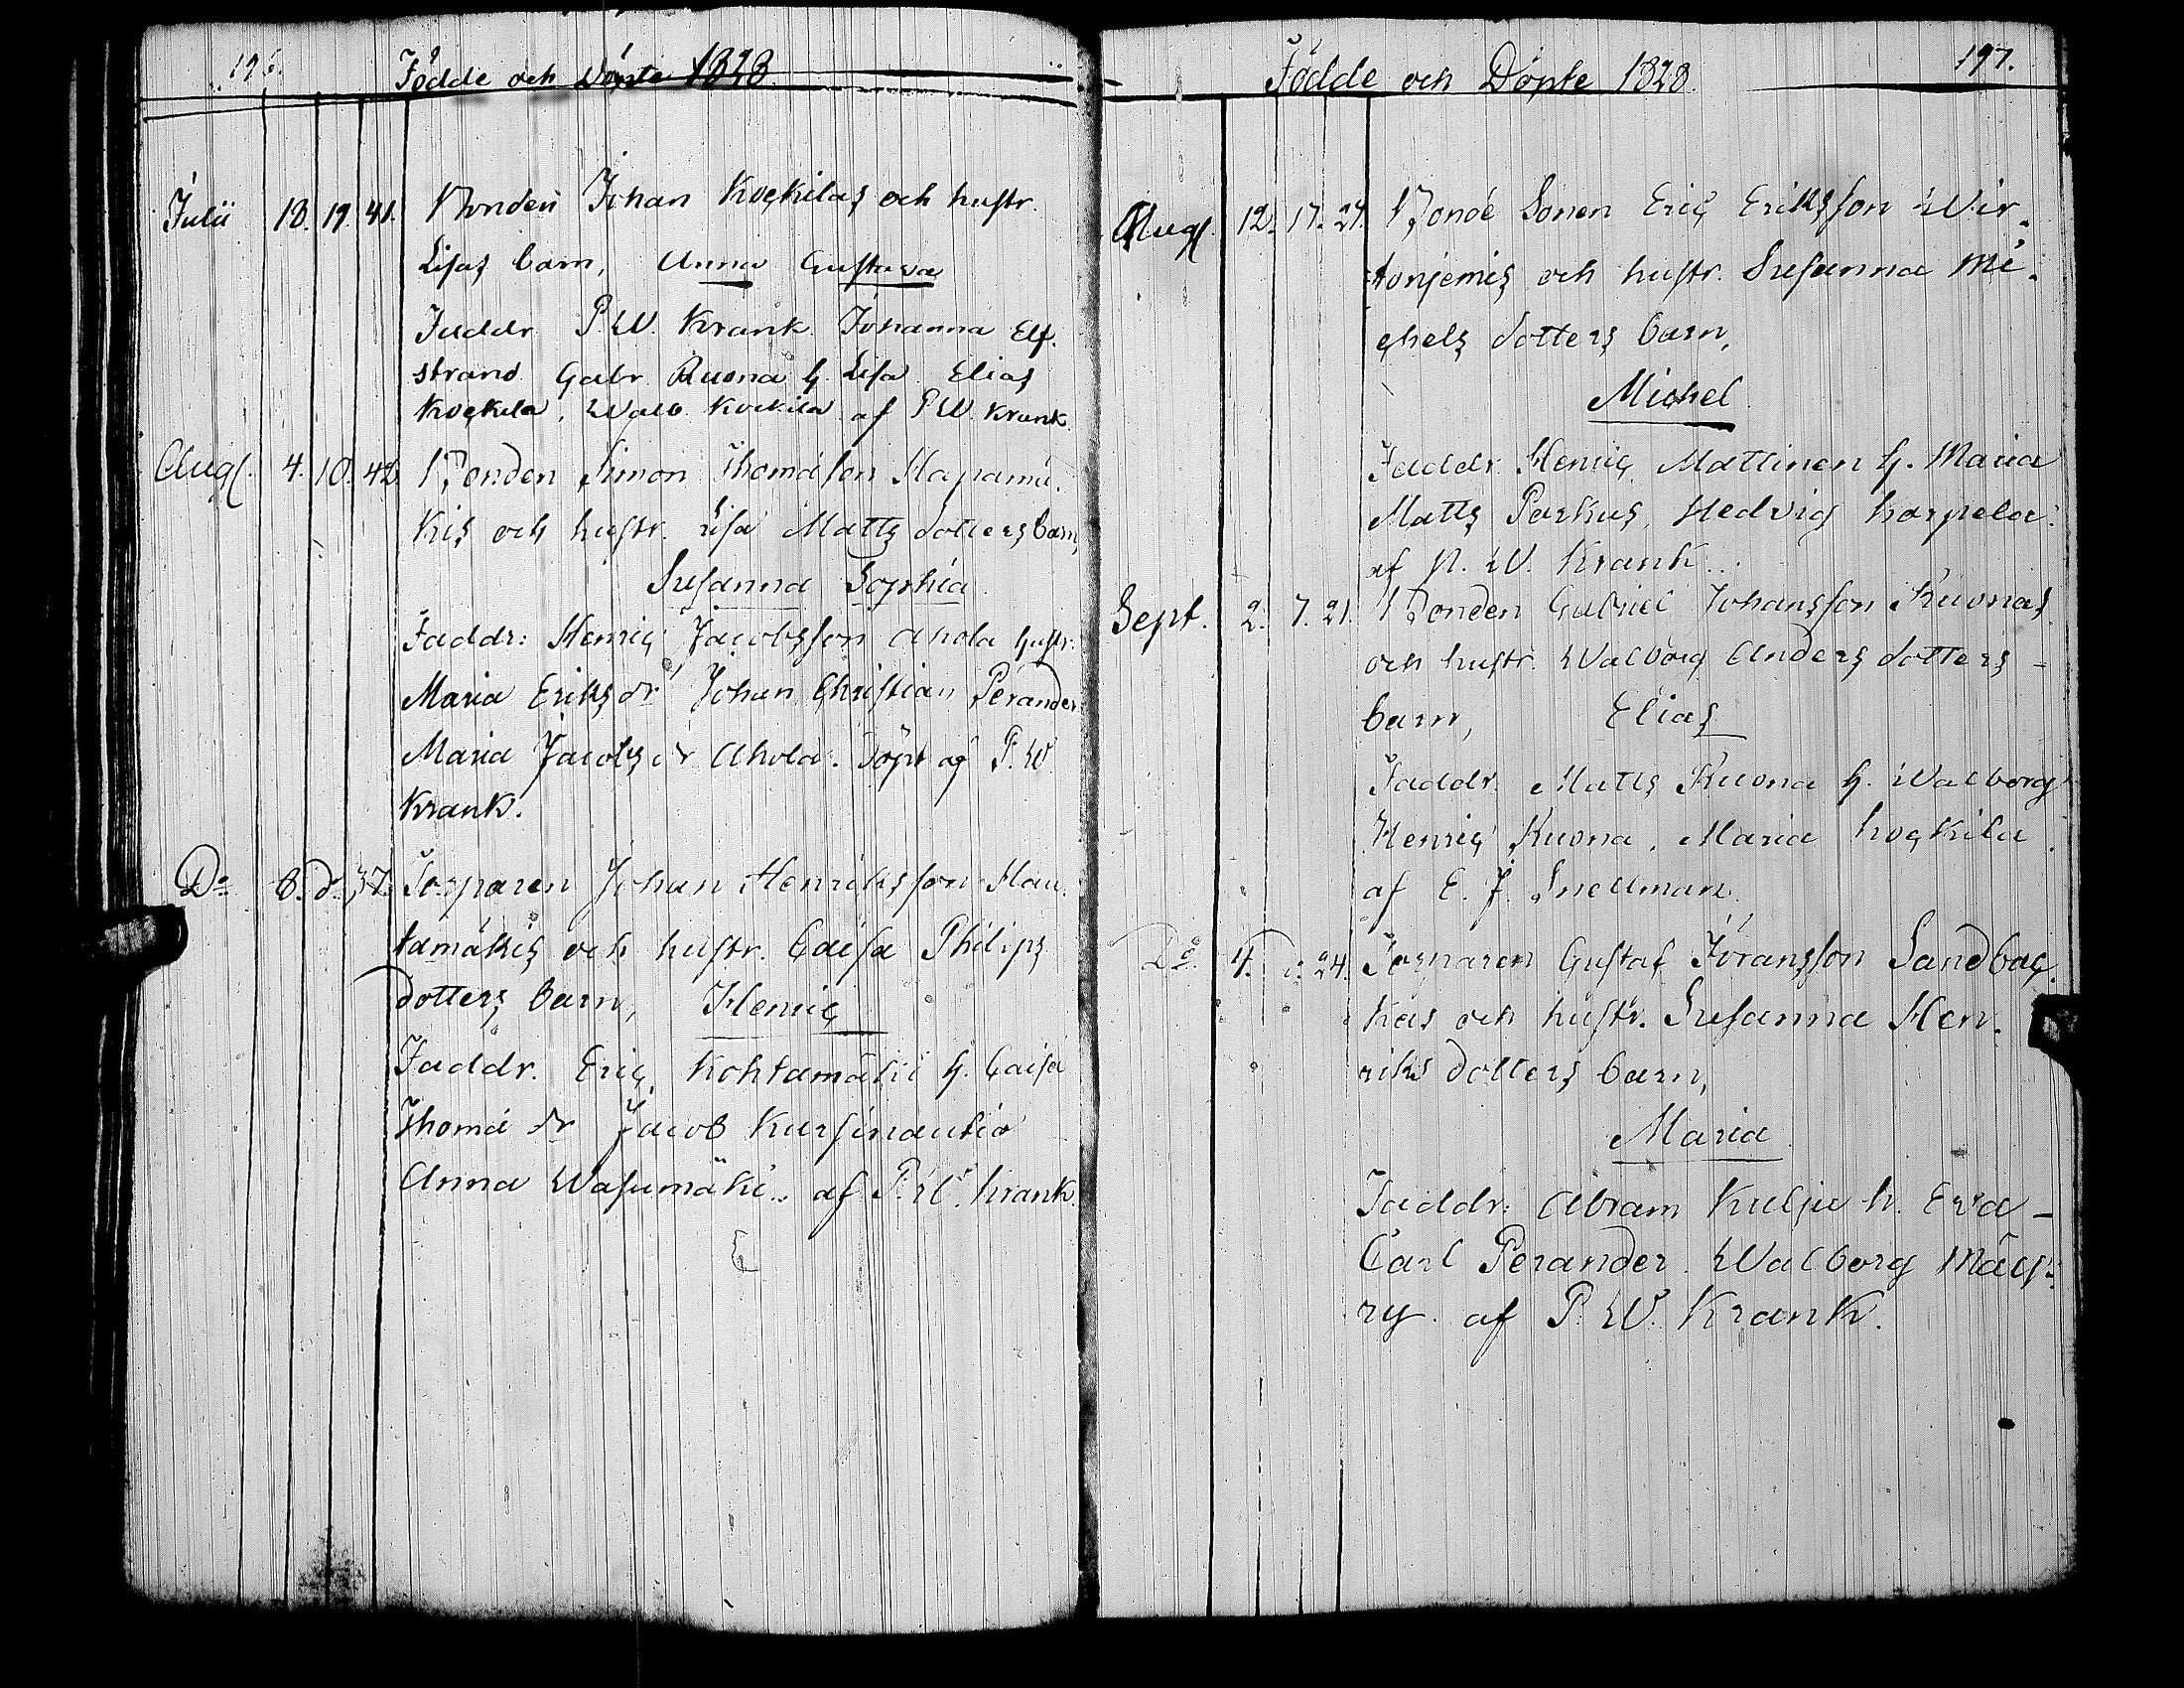 196.
Födde och Döpte 1828
Julii 18. 19. 41. Bonden Johan Kockilas och hustr.
Lisas barn, Anna Gustava
Faddr P.W. Krank Johanna Elf-
strand Gabr. Ruona h. Lisa Elias
Kockila, Walb. Kockila af P.W. Krank.
Aug. 4. 10. 42. Bonden Simon Thomasson Hapamä-
kis och hustr. Lisa Matts dotters barn,
Susanna Sophia
Faddr: Henric Jacobsson Ahola hustr.
Maria Eriks dr Johan Christian Perander
Maria Jacobs dr Ahola. Döpt af P.W.
Krank.
Do 8. do 37. Torparen Johan Henriksson Hau-
tamäkis och hustr. Caisa Philips
dotters barn, Henric
Faddr. Eric Kohtamäki h. Caisa
Thomä dr Jacob Kursinautio
Anna Wasumäki. af P.W. Krank.
197.
Födde och Döpte 1828.
Aug. 12. 17. 27. Bonde Sonen Eric Eriksson Wir-
tonjemis och hustr. Susanna Mi-
chels dotters barn,
Michel
Faddr Henric Mattinen h. Maria
Matts Parkus, Hedvig Karpela.
af P. W. Krank.
Sept. 2. 7. 21. Bonden Gabriel Johansson Ruonas
och hustr. Walborg Anders dotters
barn, Elias
Faddr. Matts Ruona h. Walborg
Henric Ruona, Maria Kockila
af E. J. Snellman.
Do. 4. 24. Torparen Gustaf Jöransson Sandbac-
kas och hustr. Susanna Hen-
riks dotters barn,
Maria
Faddr: Abram Kulju h. Eva
Carl Perander Walborg Mäy-
ry. af P. W. Krank.